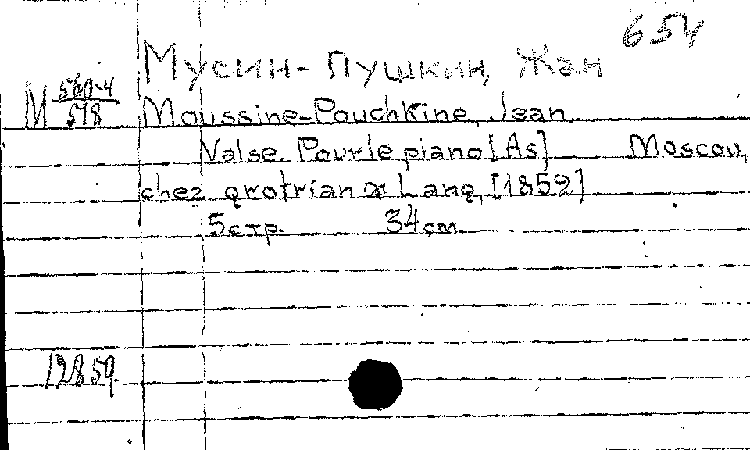 654
Мусин-Пушкин, Жан
М 560-4/578 Moussine-Pouchkine, Jean
Valse. Pour le piano [As] Moscou,
chez grotrian & Lang, [1859]
5 стр. 34 см.
12859